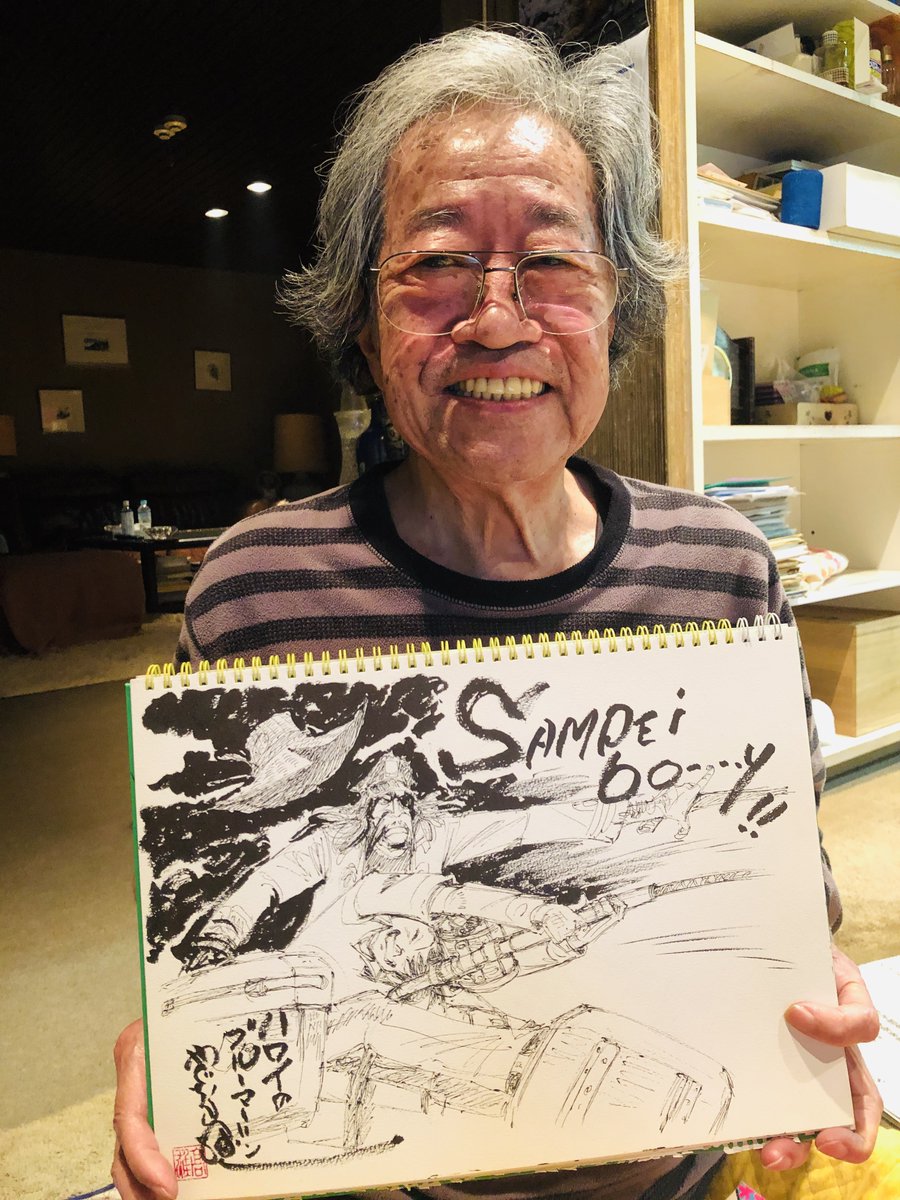 SAMPEi
bo‥‥y!!
ハワイの
ブルーマーリン